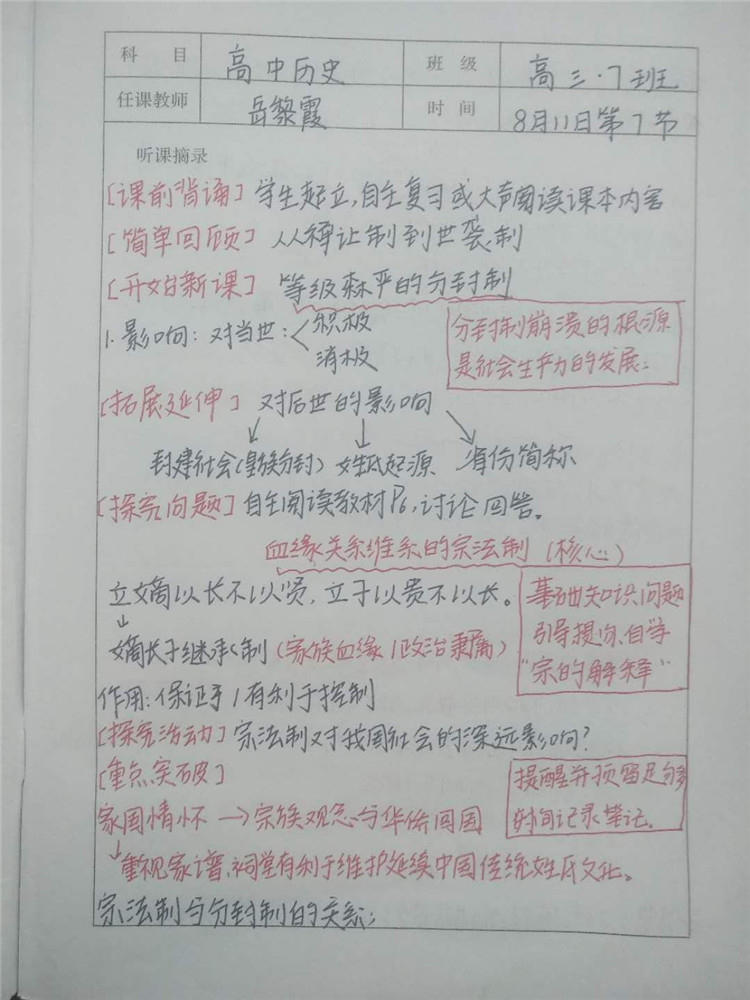 科 目 高中历史 班 级 高三·7班
任课教师 岳黎霞 时 间 8月11日第7节
听课摘录
[课前背诵] 学生起立,自主复习或大声阅读课本内容
[简单回顾] 从禅让制到世袭制
[开始新课] 等级森严的分封制
1. 影响: 对当世: 积极
消极
分封制崩溃的根源
是社会生产力的发展;
[拓展延伸] 对后世的影响
封建社会(皇族分封) 姓氏起源 省份简称
[探究问题] 自主阅读教材P6,讨论回答。
血缘关系维系的宗法制 (核心)
立嫡以长不以贤,立子以贵不以长。
嫡长子继承制 (家族血缘/政治隶属)
基础知识问题
引导提问、自学
“宗的解释”
作用: 保证于/有利于控制
[探究活动] 宗法制对我国社会的深远影响?
[重点突破]
提醒并预留足够
时间记录笔记。
家国情怀 → 宗族观念与华侨回国
重视家谱、祠堂有利于维护延续中国传统姓氏文化。
宗法制与分封制的关系: